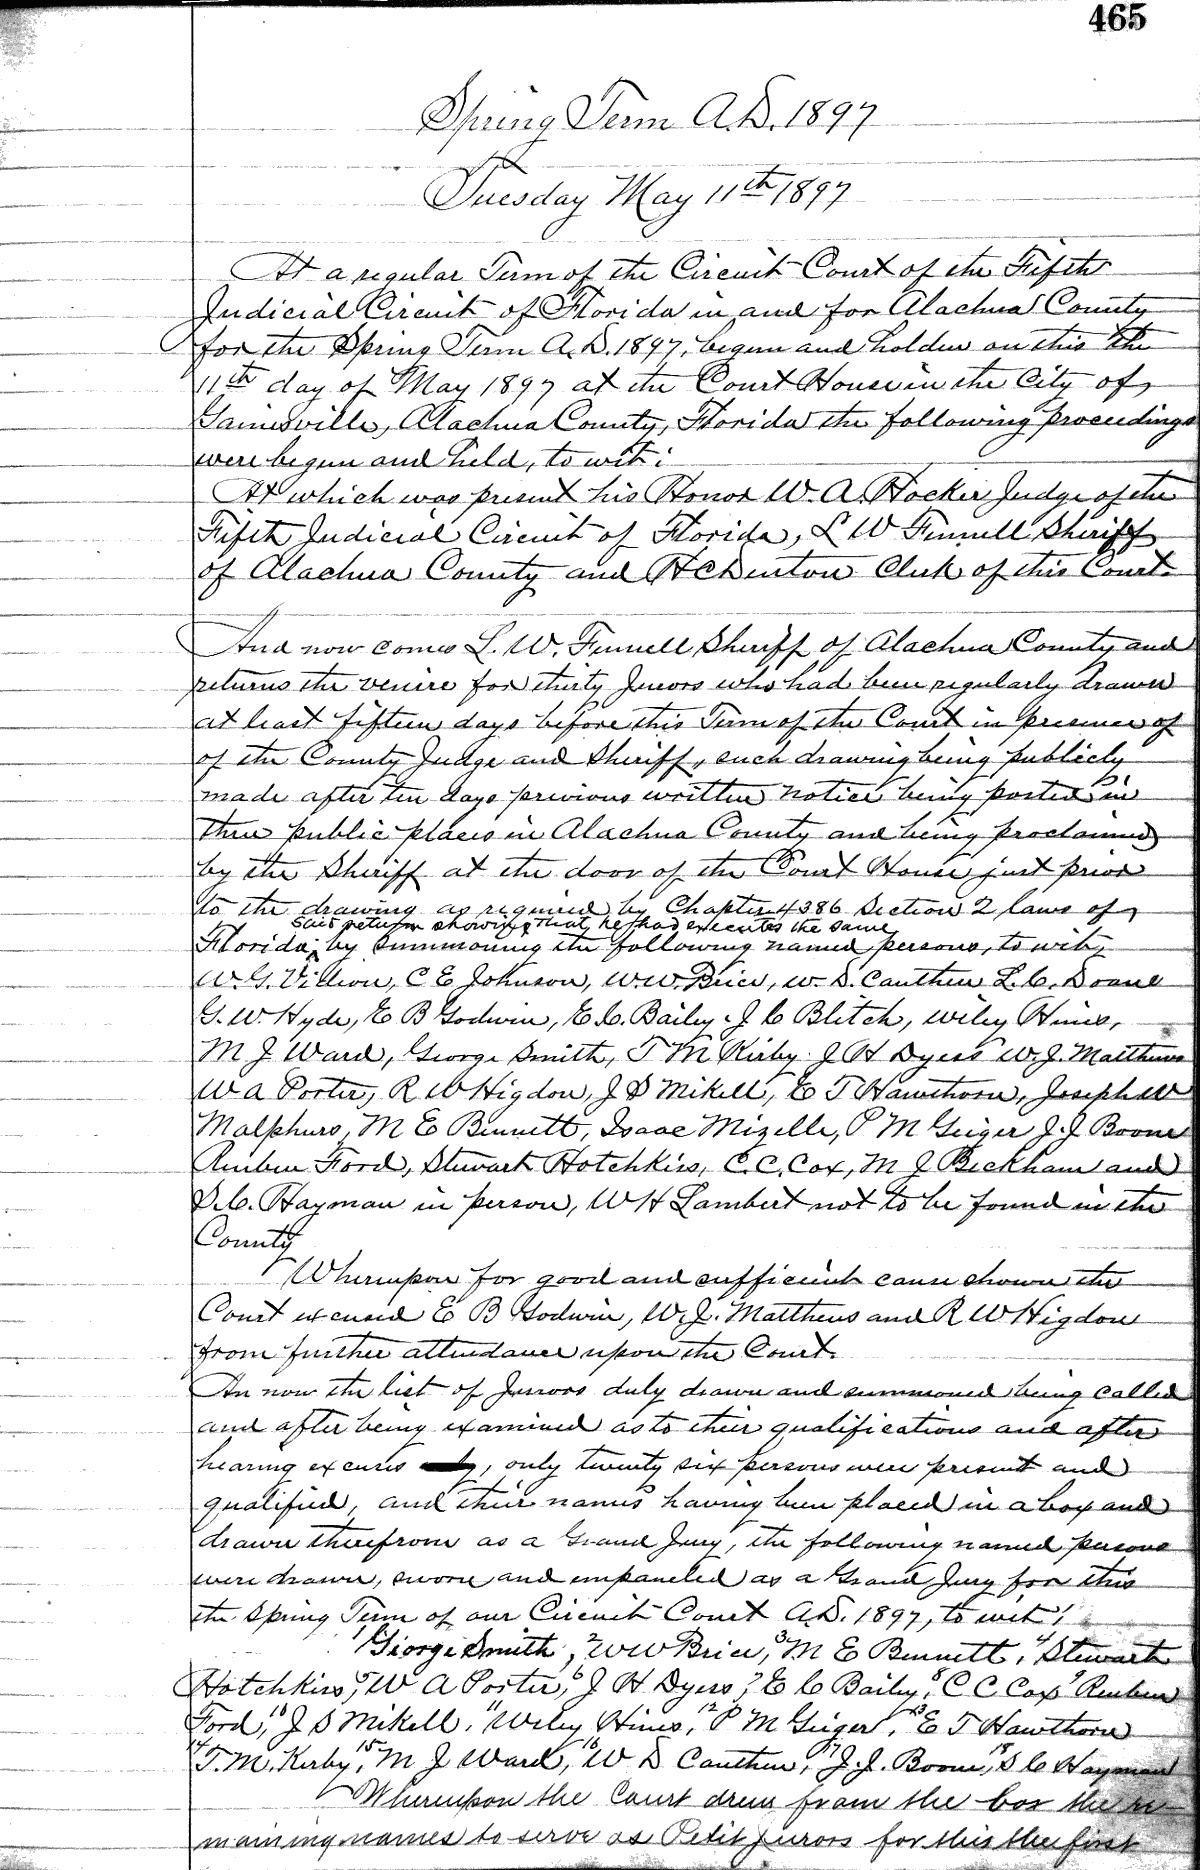 465
Spring Term A.D. 1897
Tuesday May 11th 1897
At a regular Term of the Circuit Court of the Fifth
Judicial Circuit of Florida in and for Alachua County
for the Spring Term A.D. 1897, begun and holden on this the
11th day of May 1897 at the Court House in the City of
Gainesville, Alachua County, Florida the following proceedings
were begun and held, to wit:
At which was present his Honor W. A. Hocker Judge of the
Fifth Judicial Circuit of Florida, L W Fennell Sheriff
of Alachua County and H C Denton Clerk of this Court.
And now comes L. W. Fennell Sheriff of Alachua County and
returns the venire for thirty Jurors who had been regularly drawn
at least fifteen days before this Term of the Court in presence of
of the County Judge and Sheriff, such drawing being publicly
made after ten days previous written notice being posted in
three public places in Alachua County and being proclaimed
by the Sheriff at the door of the Court House just prior
to the drawing as required by Chapter 4386 Section 2 laws of
said return showing that he has executed the same
Florida, by summoning the following named persons, to wit,
W. G. C E Johnson, W. W. Brice, W. D. Cauthen L. C. Doane
G. W. Hyde, E B Godwin, E. C. Bailey. J C Blitch, Wiley Hines,
M J Ward, George Smith, T M Kirby J H Dyess W. J. Matthews
W A Porter, R W Higdon, J S Mikell, E T Hawthorn, Joseph W
Malphurs, M E Bennett, Isaac Mizelle, P M Geiger J. J. Boone
Reuben Ford, Stewart Hotchkiss, C. C. Cox, M J Beckham and
S. C. Hayman in person, W H Lambert not to be found in the
County
Whereupon for good and sufficient cause shown the
Court excused E B Godwin, W. J. Matthews and R W Higdon
from further attendance upon the Court.
An now the list of Jurors duly drawn and summoned being called
and after being examined as to their qualifications and after
hearing excuses , only twenty six persons were present and
qualified, and their names having been placed in a box and
drawn therefrom as a Grand Jury, the following named persons
were drawn, sworn and empaneled as a Grand Jury for this
the Spring Term of our Circuit Court A.D. 1897, to wit;
1 George Smith, 2 W W Brice, 3 M E Bennett, 4 Stewart
Hotchkiss, 5 W A Porter, 6 J H Dyess, 7 E C Baily, 8 C C Cox 9 Reuben
Ford, 10 J S Mikell, 11 Wiley Hines, 12 P M Geiger, 13 E T Hawthorn
14 T. M. Kirby, 15 M J Ward, 16 W D Cauthen, 17 J. J. Boone, 18 S C Hayman
Whereupon the Court drew from the box the re-
maining names to serve as Petit Jurors for this the first